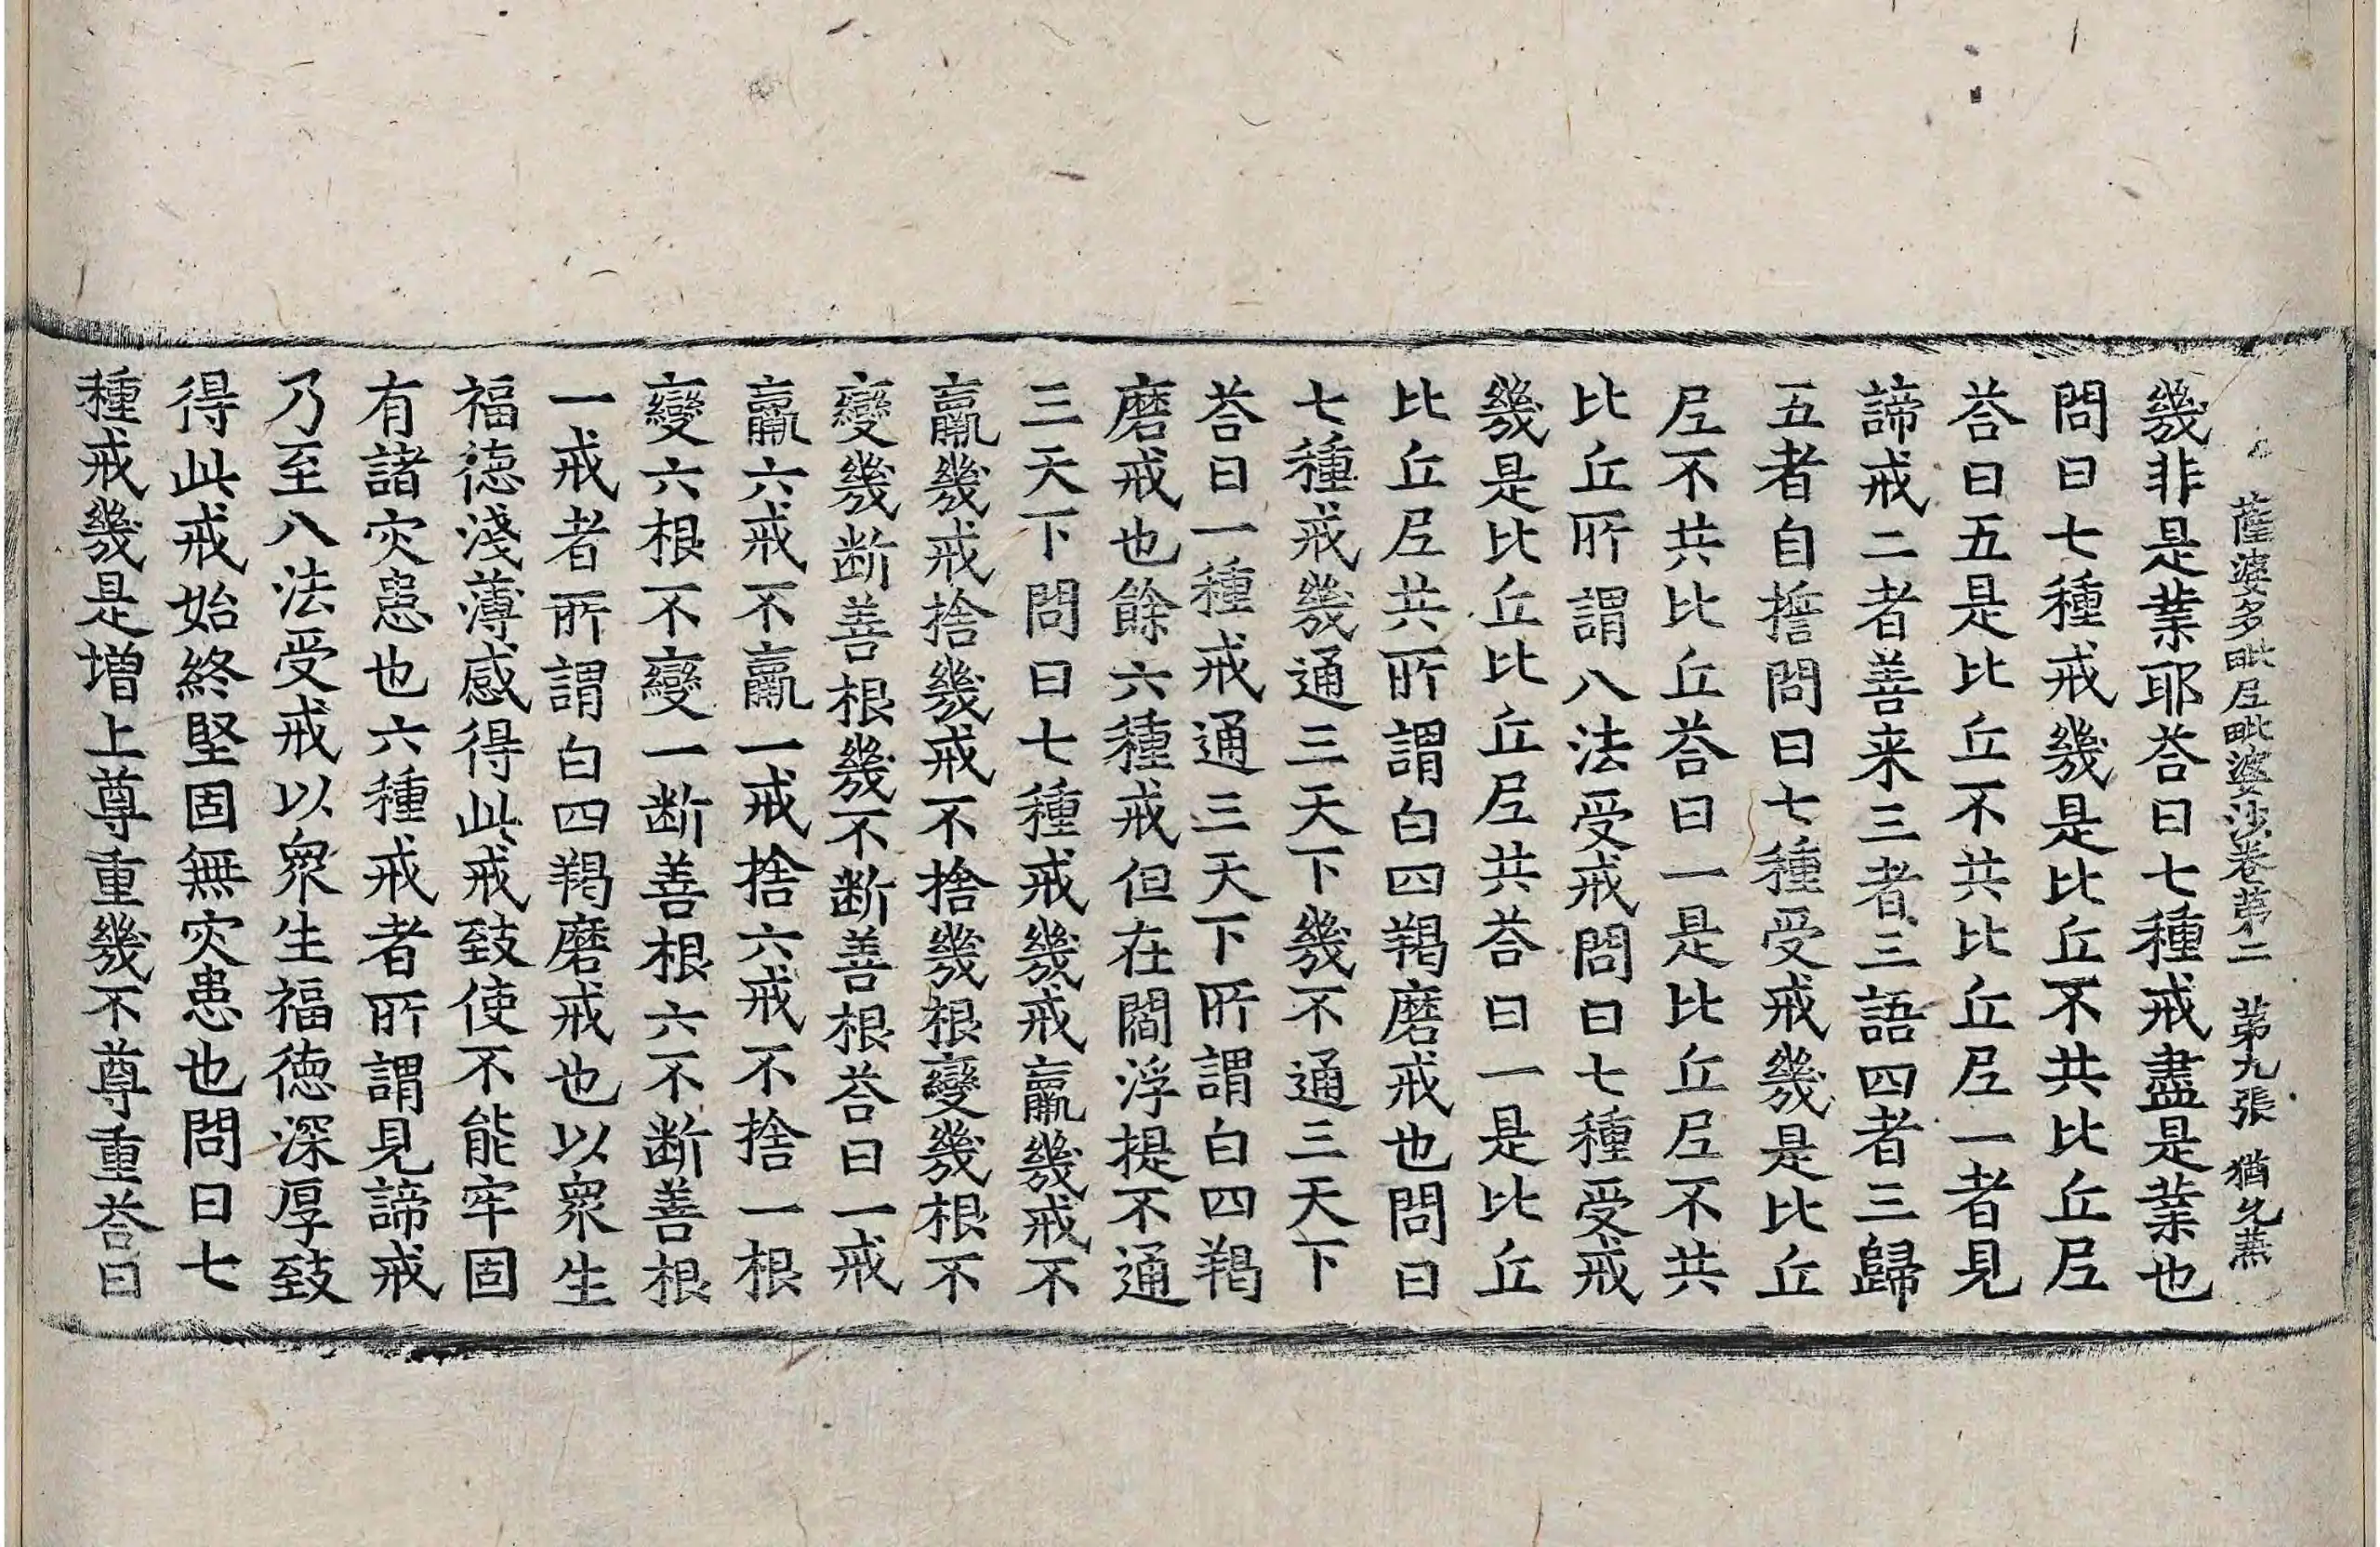 薩婆多毗尼毗婆沙卷第二 第九張 猶
幾非是業耶荅曰七種戒盡是業也
問曰七種戒幾是比丘不共比丘尼
荅曰五是比丘不共比丘尼一者見
諦戒二者善来三者三語四者三歸
五者自誓問曰七種受戒幾是比丘
尼不共比丘荅曰一是比丘尼不共
比丘所謂八法受戒問曰七種受戒
幾是比丘比丘尼共荅曰一是比丘
比丘尼共所謂白四羯磨戒也問曰
七種戒幾通三天下幾不通三天下
荅曰一種戒通三天下所謂白四羯
磨戒也餘六種戒但在閻浮提不通
三天下問曰七種戒幾戒羸幾戒不
羸幾戒捨幾戒不捨幾根變幾根不
變幾断善根幾不断善根荅曰一戒
羸六戒不羸一戒捨六戒不捨一根
變六根不變一断善根六不断善根
一戒者所謂白四羯磨戒也以衆生
福德淺薄感得此戒致使不能牢固
有諸灾患也六種戒者所謂見諦戒
乃至八法受戒以衆生福德深厚致
得此戒始終堅固無灾患也問曰七
種戒幾是增上尊重幾不尊重荅曰